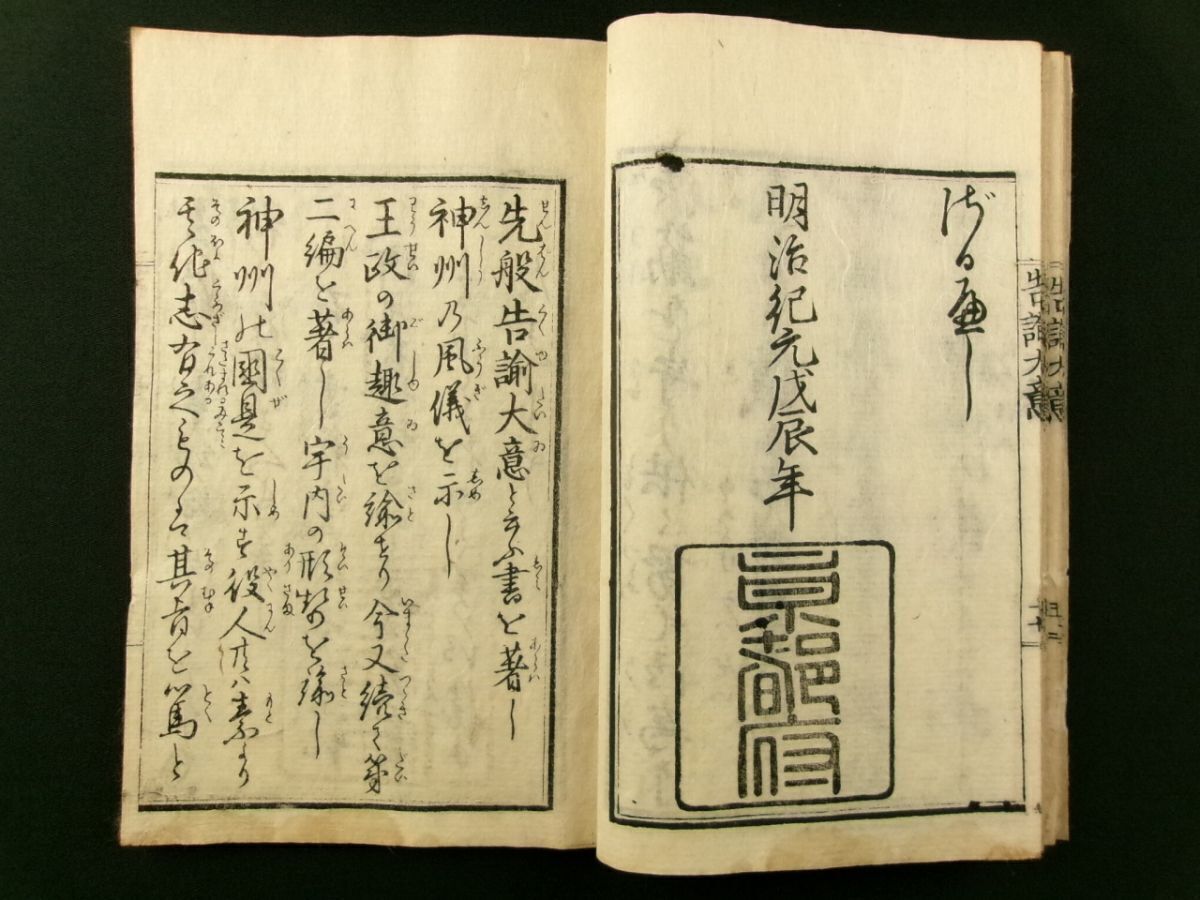 ざるべし
明治紀元戊辰年
京都府
告諭大意
先般告諭大意と云ふ書を著し
神州乃風儀を示し
王政の御趣意を諭せり今又続て第
二編を著し宇内の形勢を諭し
神州の國是を示す役人共ハ素より
其他志有之ものは其旨を篤と